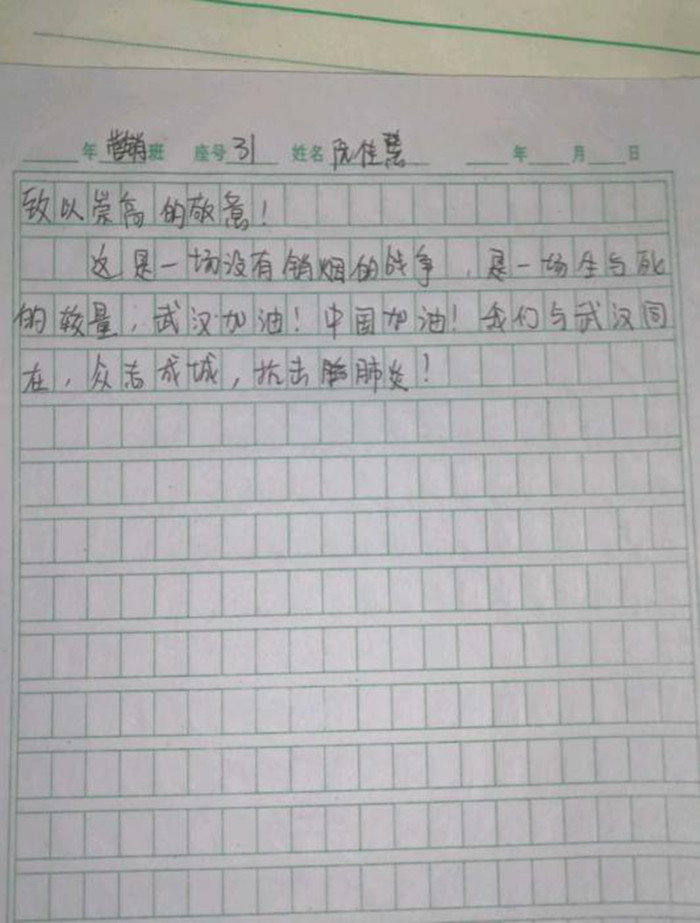 年 营销班 座号 31 姓名 阮佳慧 年 月 日
致以崇高的敬意！
这是一场没有销烟的战争，是一场生与死
的较量，武汉加油！中国加油！我们与武汉同
在，众志成城，抗击肺炎！